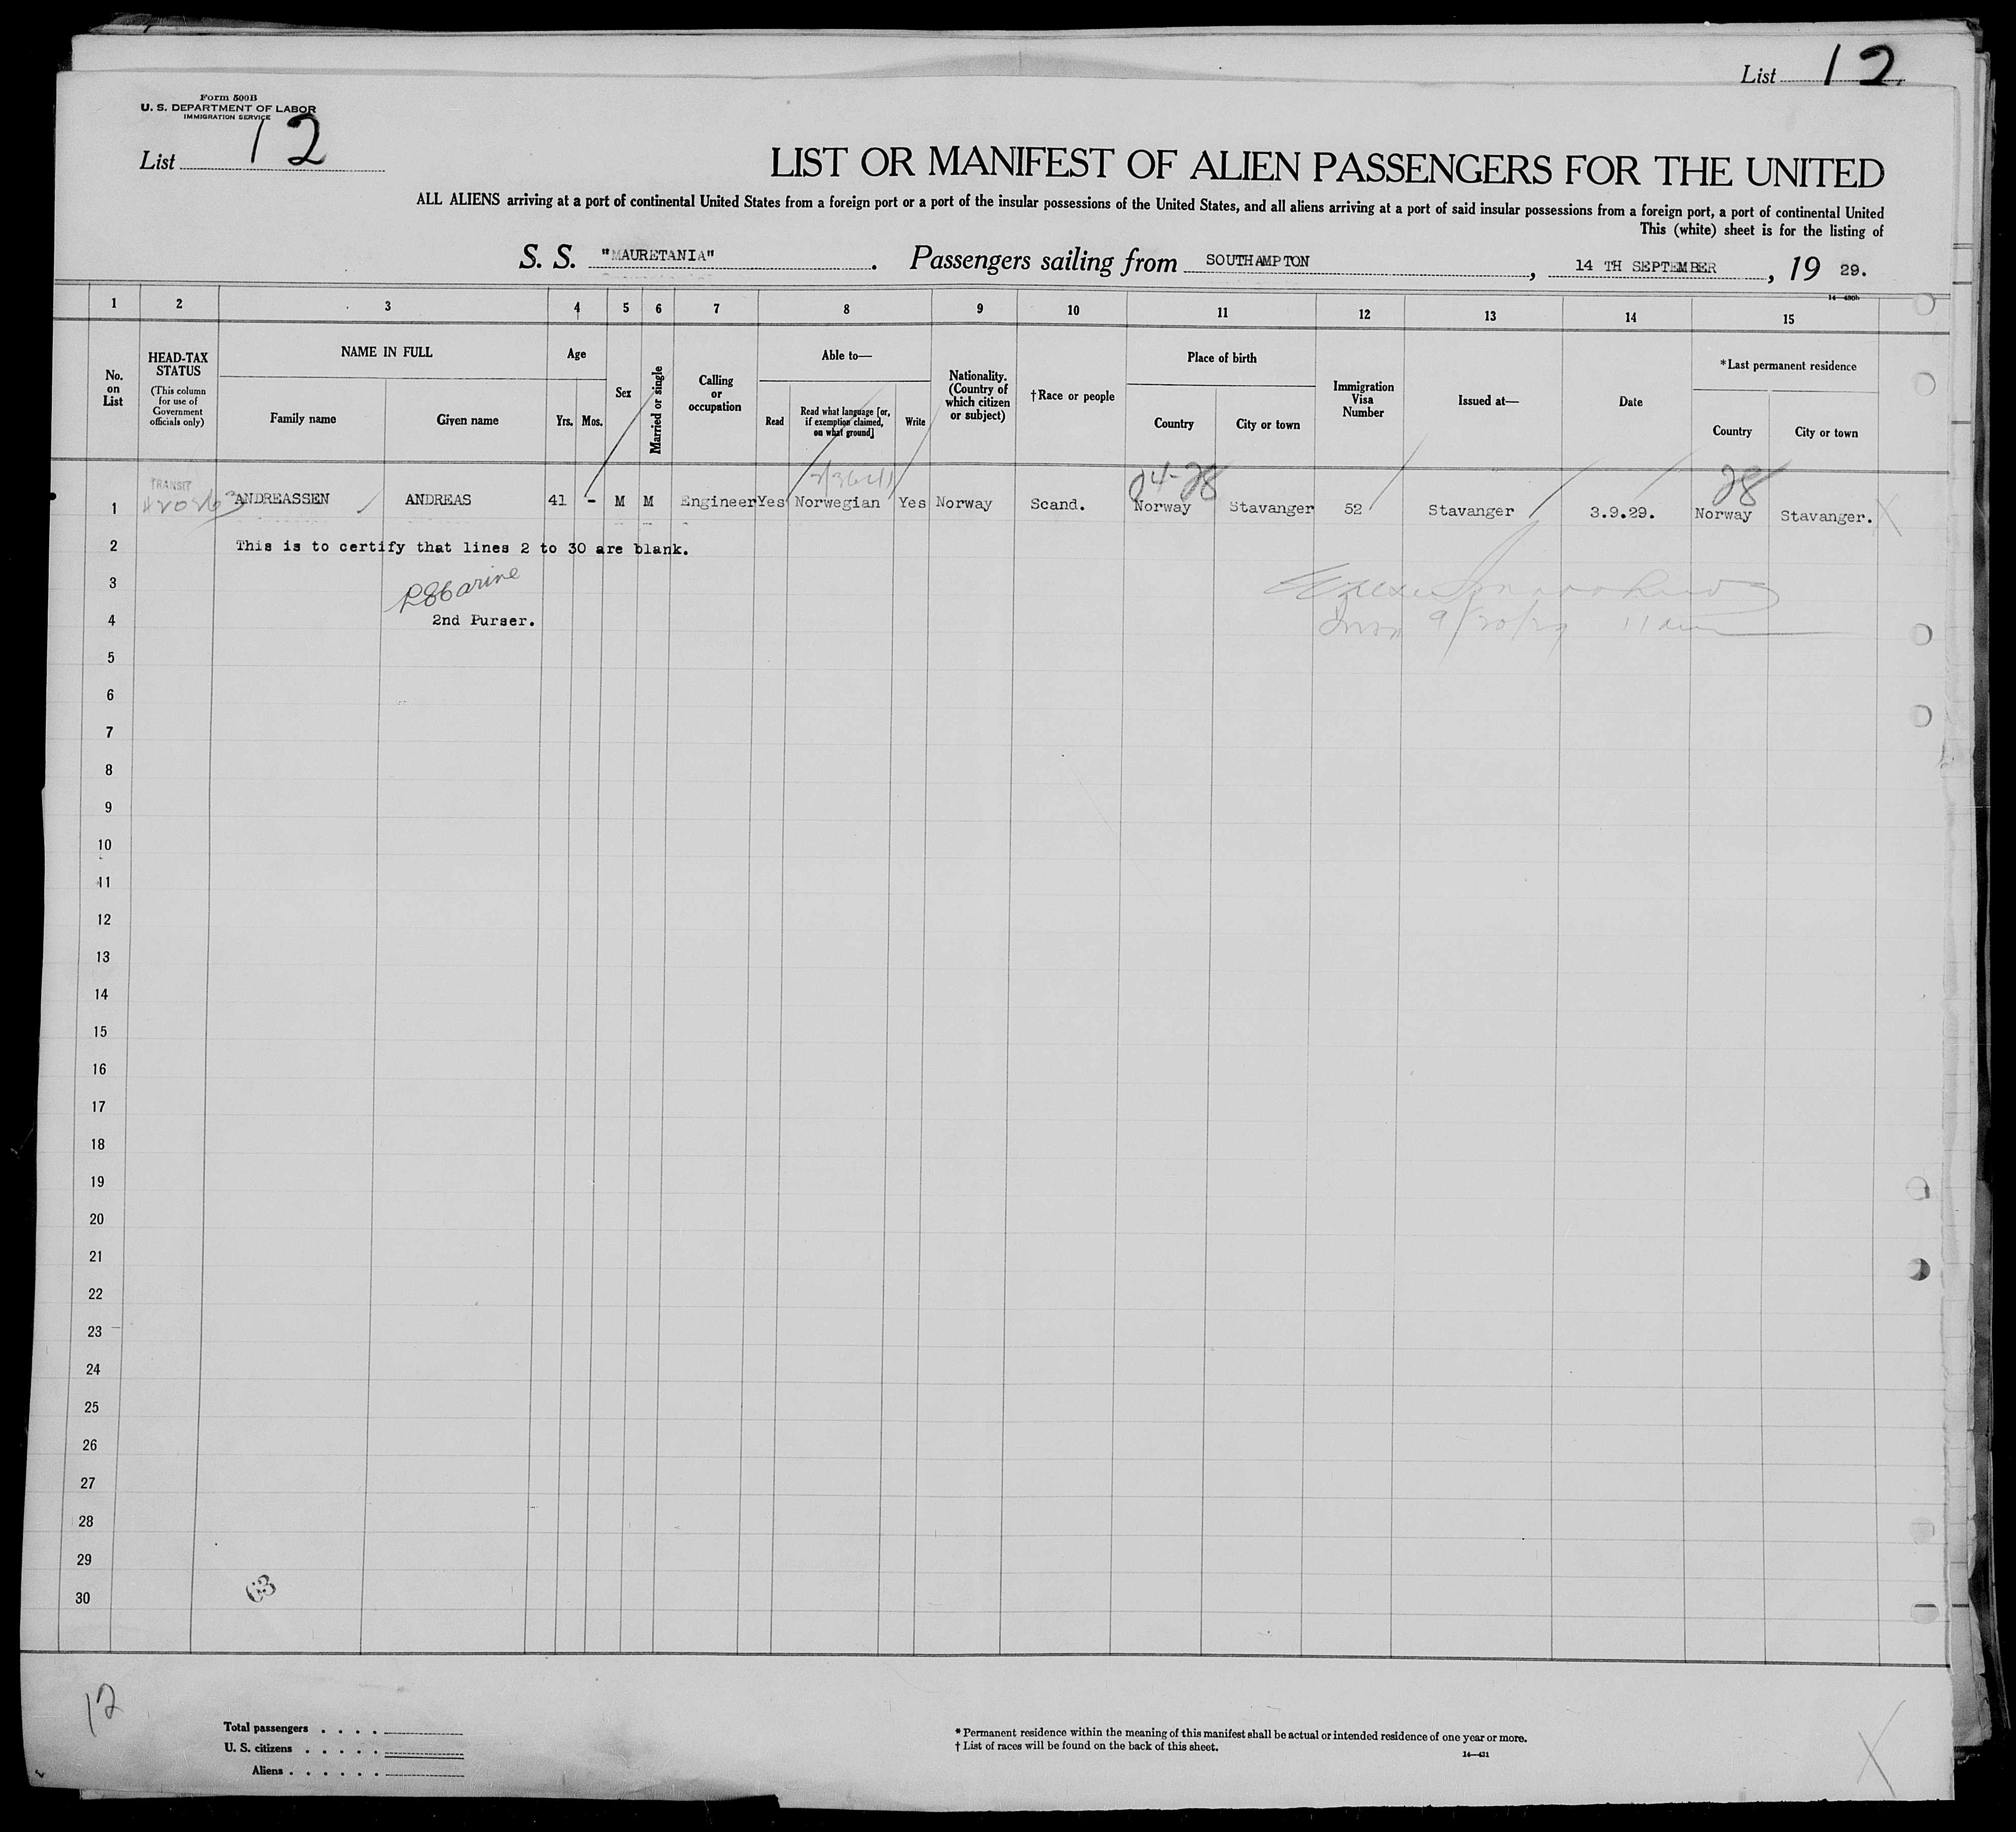 List 12
Form 500B
U. S. DEPARTMENT OF LABOR
IMMIGRATION SERVICE
List 12
LIST OR MANIFEST OF ALIEN PASSENGERS FOR THE UNITED
ALL ALIENS arriving at a port of continental United States from a foreign port or a port of the insular possessions of the United States, and all aliens arriving at a port of said insular possessions from a foreign port, a port of continental United
This (white) sheet is for the listing of
S. S. "MAURETANIA". Passengers sailing from SOUTHAMPTON, 14 TH SEPTEMBER, 19 29.
1 2 3 4 5 6 7 8 9 10 11 12 13 14 15
No. on List
HEAD-TAX STATUS (This column for use of Government officials only)
NAME IN FULL
Family name Given name
Age
Yrs. Mos.
Sex
Married or single
Calling or occupation
Able to—
Read Read what language [or, if exemption claimed, on what ground] Write
Nationality. (Country of which citizen or subject)
†Race or people
Place of birth
Country City or town
Immigration Visa Number
Issued at—
Date
*Last permanent residence
Country City or town
TRANSIT
24-28 28
1 ANDREASSEN ANDREAS 41 - M M Engineer Yes Norwegian Yes Norway Scand. Norway Stavanger 52 Stavanger 3.9.29. Norway Stavanger.
2 This is to certify that lines 2 to 30 are blank.
3
4 2nd Purser. 9/20/29
5
6
7
8
9
10
11
12
13
14
15
16
17
18
19
20
21
22
23
24
25
26
27
28
29
30
63
12
Total passengers . . . .
U. S. citizens . . . . .
Aliens . . . . . .
* Permanent residence within the meaning of this manifest shall be actual or intended residence of one year or more.
† List of races will be found on the back of this sheet.
14—431